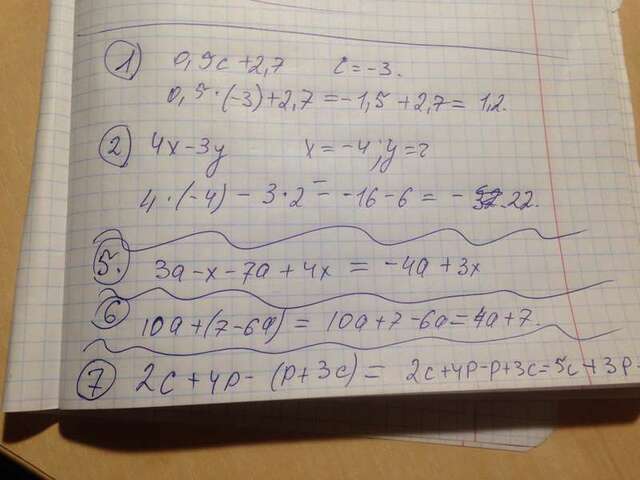 1) 0,5c+2,7 c=-3.
0,5·(-3)+2,7=-1,5+2,7=1,2.
2) 4x-3y x=-4; y=2
4·(-4)-3·2=-16-6=-22.
5. 3a-x-7a+4x=-4a+3x
6 10a+(7-6a)=10a+7-6a=4a+7.
7 2c+4p-(p+3c)=2c+4p-p+3c=5c+3p